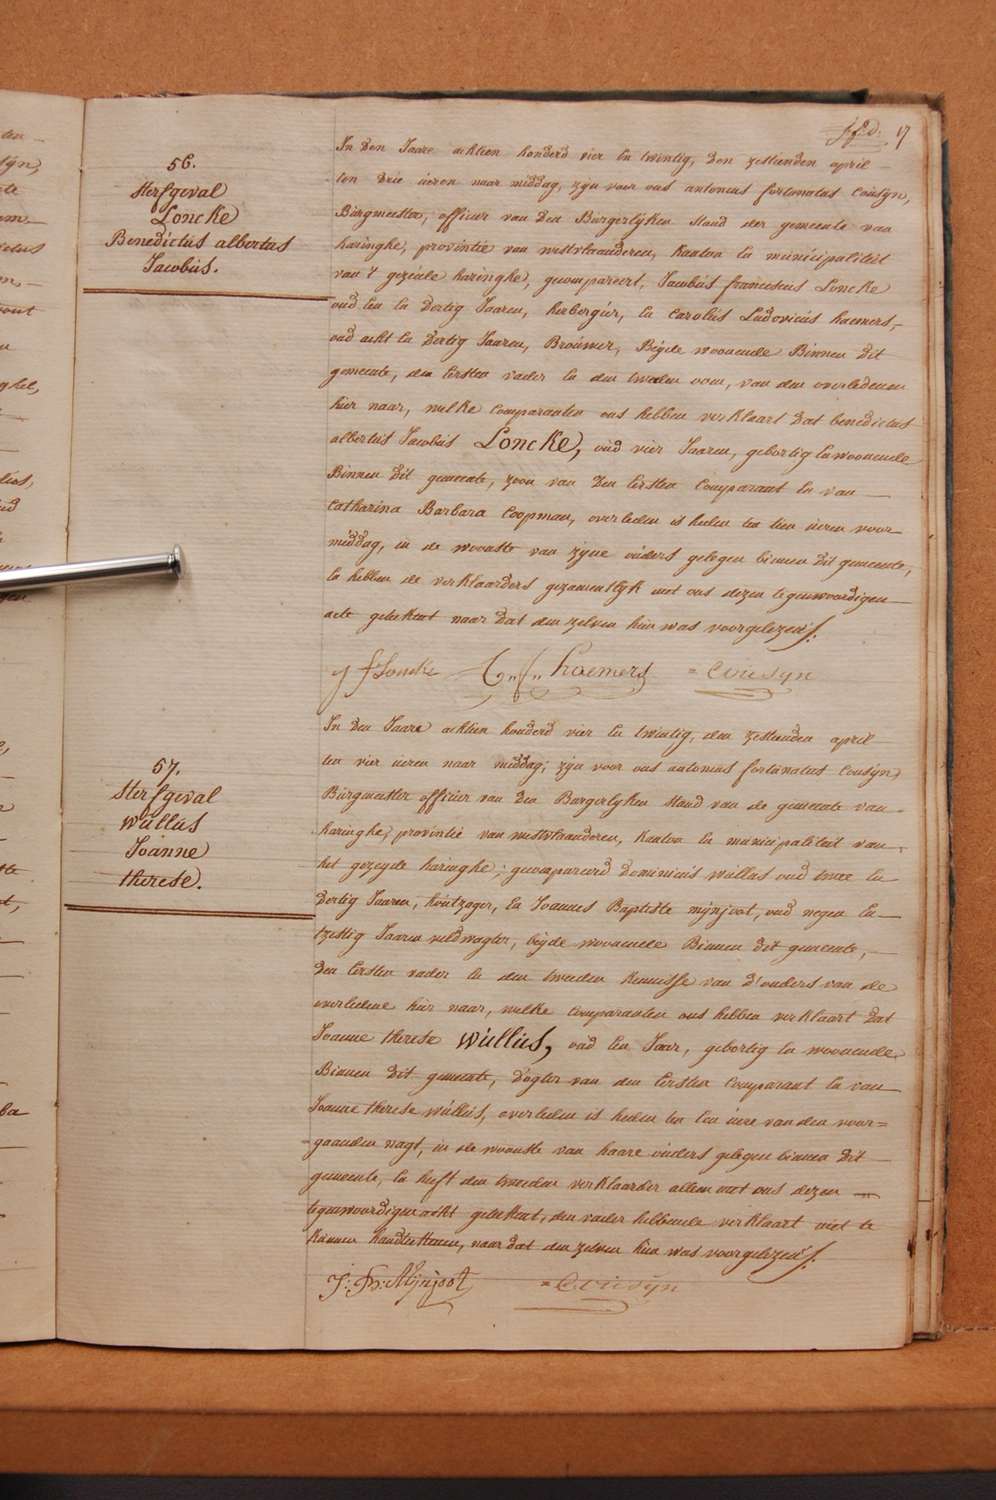 17
56.
Sterfgeval
Loncke
Benedictus albertus
Jacobus.
In den Jaare achtien honderd vier en twintig, den zestienden april
ten drie ueren naar middag, zyn voor ons antonius fortunatus Cousyn,
Burgmeester, officier van den Burgerlyken stand der gemeente van
haringhe, provintie van westvlaanderen, kanton en municipaliteit
van 't gezeide haringhe, gecompareert, Jacobus franciscus Loncke
oud een en dertig Jaaren, herbergier, en Carolus Ludovicus haemers,
oud acht en dertig Jaaren, Brouwer, Beyde woonende Binnen dit
gemeente, den eersten vader en den tweeden oom, van den overledenen
hier naar, welke comparanten ons hebben verklaart dat benedictus
albertus Jacobus Loncke, oud vier Jaaren, gebortig en woonende
Binnen dit gemeente, zoon van den eersten Comparant en van
Catharina Barbara Coopman, overleden is heden ten tien ueren voor
middag, in de wooste van zyne ouders gelegen binnen dit gemeente,
en hebben de verklaarders gezamentlyk met ons dezen tegenwoordigen
acte geteekent naar dat den zelven hun was voorgelezen.
j f Loncke C.. L.. haemers = Cousyn
57.
Sterfgeval
wullus
Joanne
therese.
In den Jaare achtien honderd vier en twintig, den zestienden april
ten vier ueren naar middag, zyn voor ons antonius fortunatus Cousyn,
Burgmeester officier van den Burgerlyken stand van de gemeente van
haringhe, provintie van westvlaanderen, kanton en municipaliteit van
het gezeyde haringhe, gecompareerd Dominicus wullus oud twee en
dertig Jaaren, houtzager, en Joannes Baptiste mynjoot, oud negen en
tzestig Jaaren veldwagter, beyde woonende Binnen dit gemeente,
den eersten vader en den tweeden kennisse van d'ouders van de
overledene hier naar, welke comparanten ons hebben verklaart dat
Joanne therese wullus, oud een Jaar, gebortig en woonende
Binnen dit gemeente, dogter van den eersten Comparant en van
Joanne therese wullus, overleden is heden ten een uere van den voor=
gaanden nagt, in de wooste van haare ouders gelegen binnen dit
gemeente, en heeft den tweeden verklaarder alleen met ons dezen
tegenwoordigen ackt geteekent, den vader hebbende verklaart niet te
konnen handteekenen, naar dat den zelven hun was voorgelezen.
J: B: Mynjoot = Cousyn